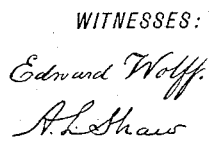 WITNESSES:
Edward Wolff.
A. L. Shaw